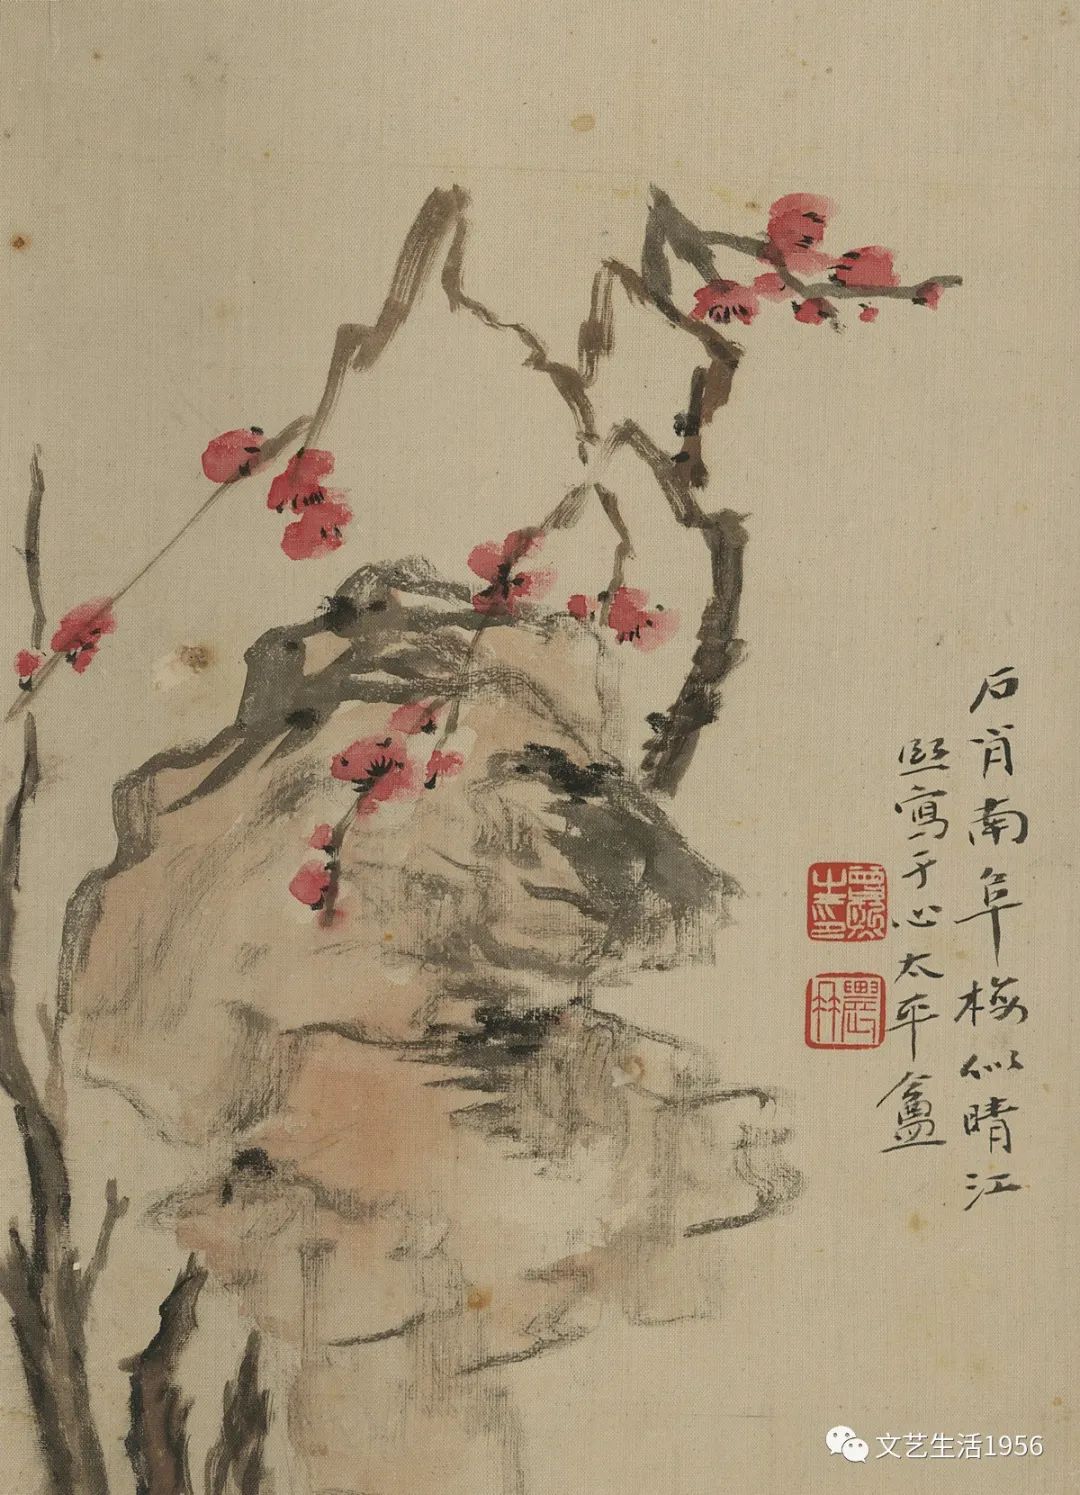 石肖南阜梅似晴江
熙写于心太平盦
文艺生活1956